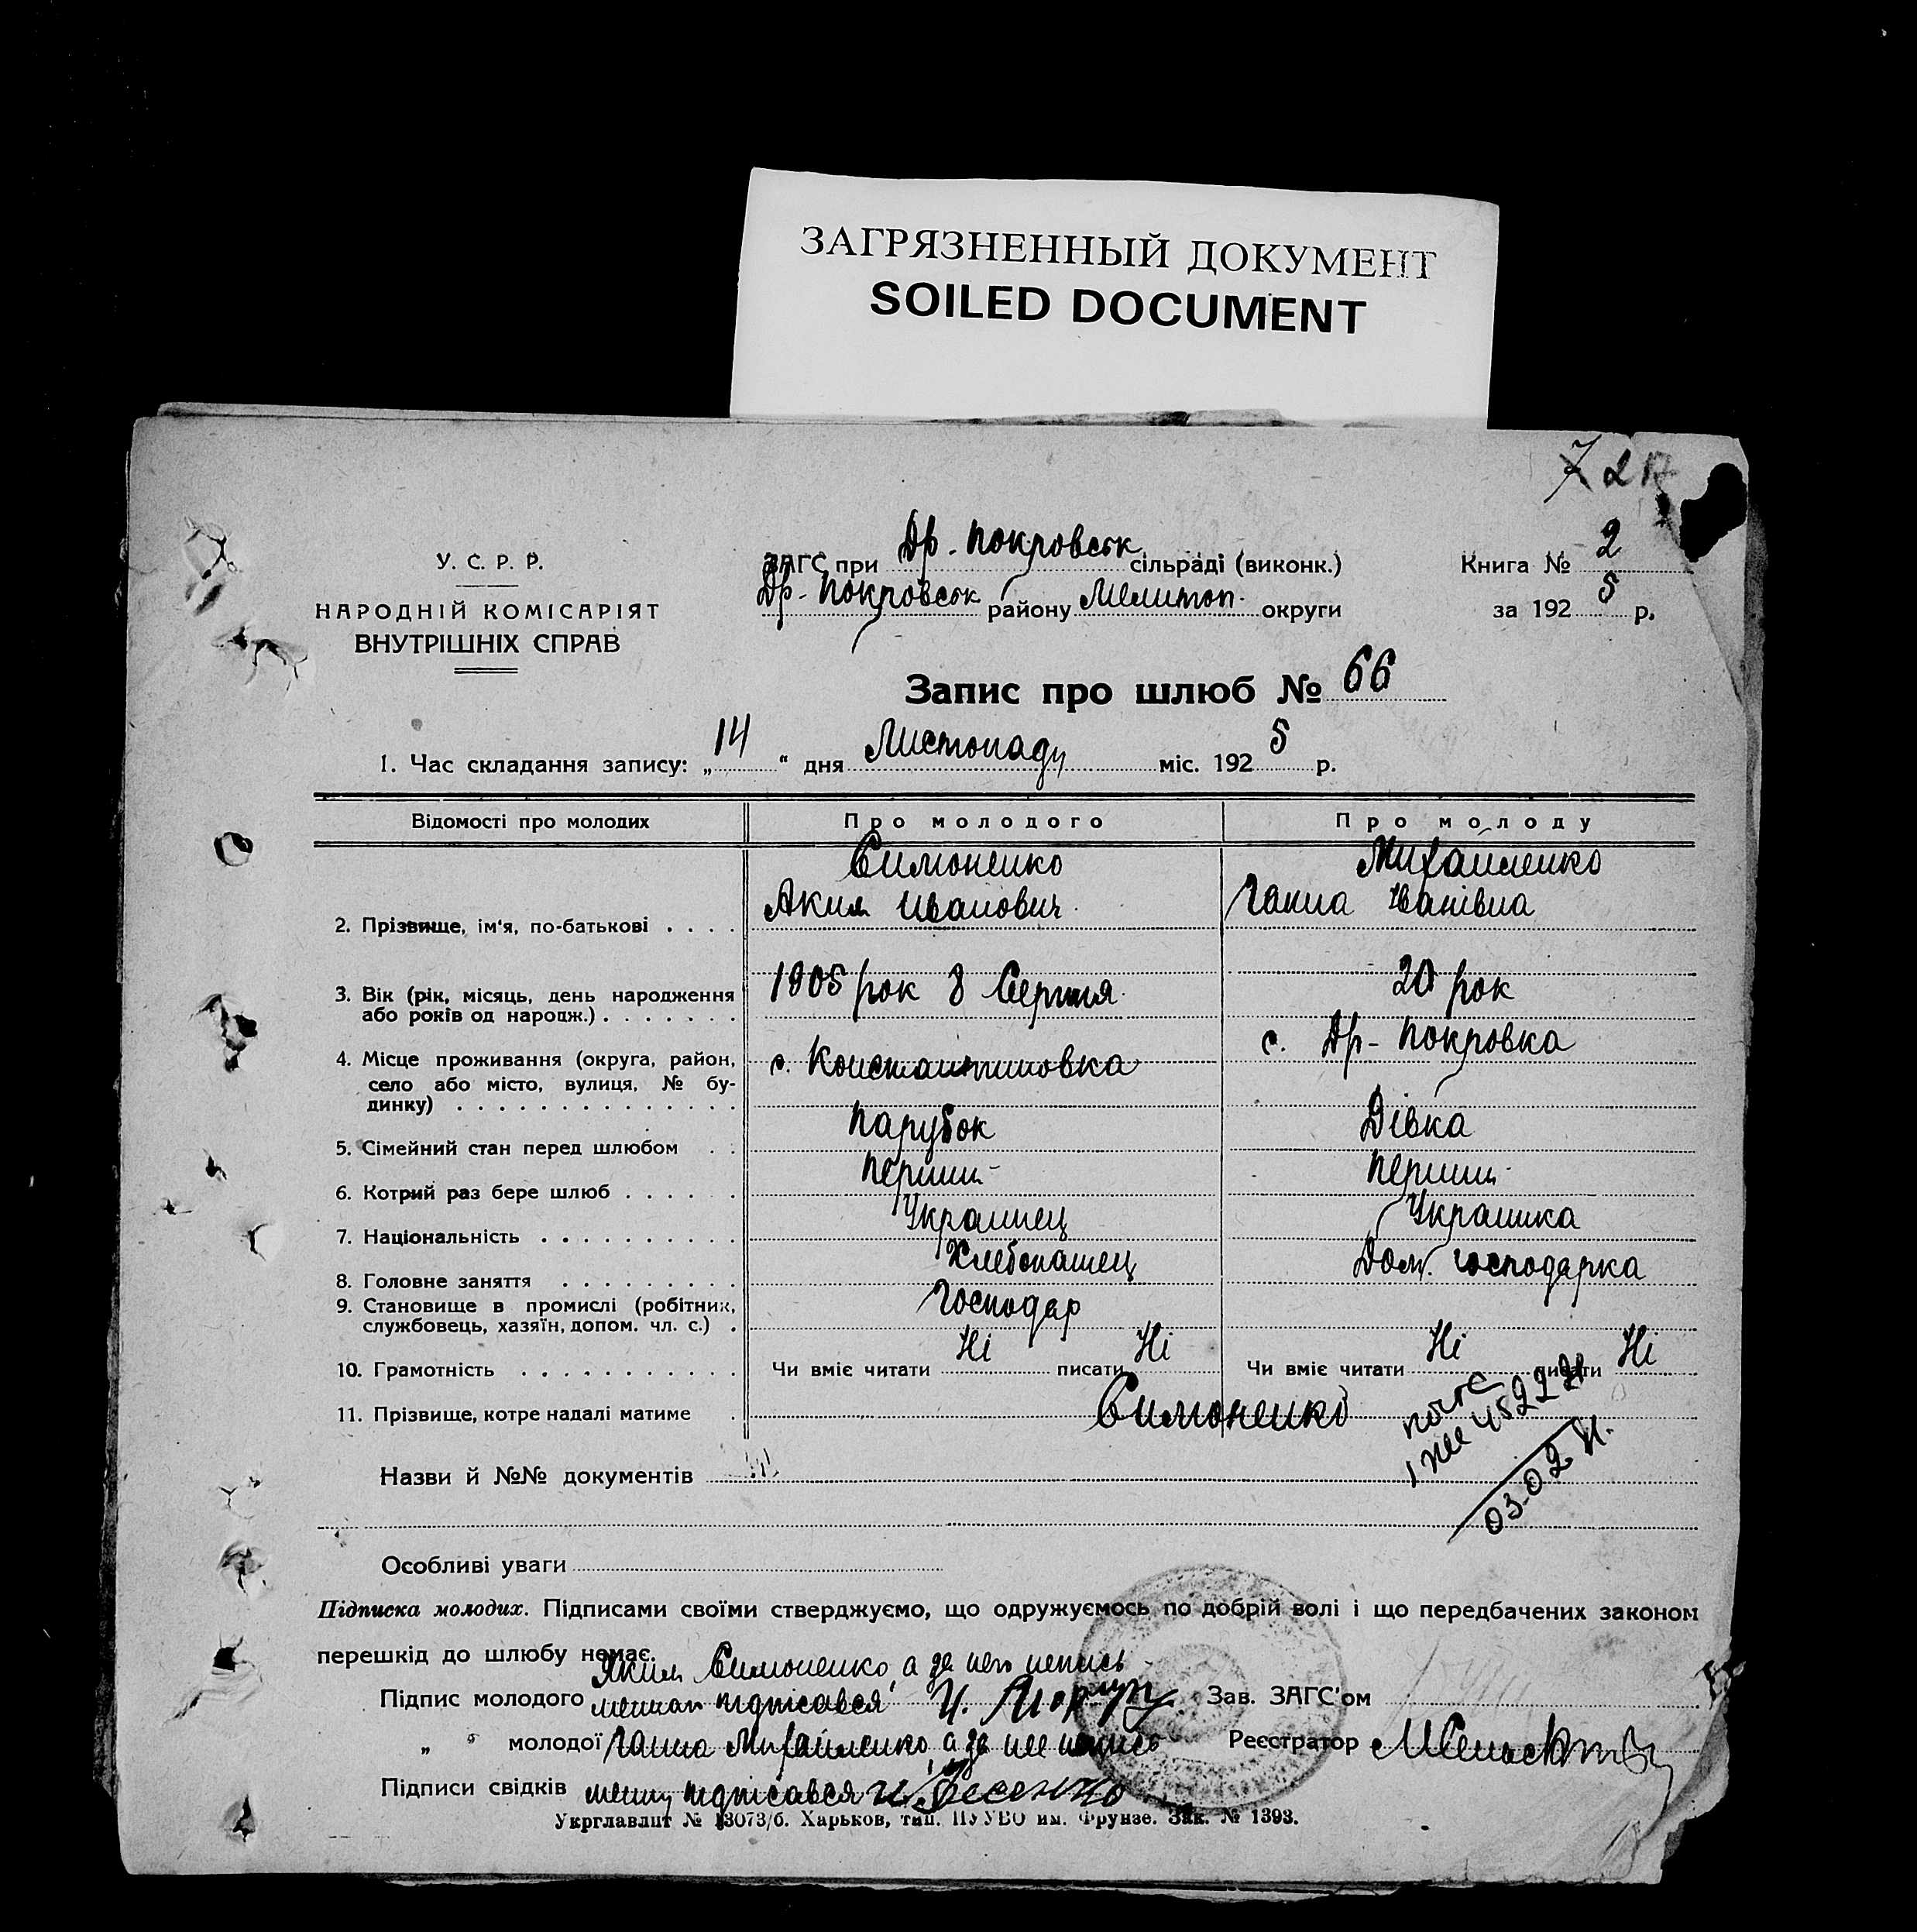 ЗАГРЯЗНЕННЫЙ ДОКУМЕНТ
SOILED DOCUMENT
7 217
У. С. Р. Р.
НАРОДНІЙ КОМІСАРІЯТ
ВНУТРІШНІХ СПРАВ
ЗАГС при Др. Покровськ сільраді (виконк.)
Др- Покровськ району Мелитоп. округи
Книга № 2
за 1925 р.
Запис про шлюб № 66
1. Час складання запису: „14“ дня Листопаду міс. 1925 р.
Відомості про молодих Про молодого Про молоду
2. Прізвище, ім'я, по-батькові . . . . Симоненко Аким Иванович Михайленко Ганна Іванівна
3. Вік (рік, місяць, день народження 1905 рок 8 Серпня 20 рок
або років од народж.) . . . . . . .
4. Місце проживання (округа, район, с. Константиновка с. Др- Покровка
село або місто, вулиця, № бу-
динку) . . . . . . . . . . . . . .
5. Сімейний стан перед шлюбом . . Парубок Дівка
6. Котрий раз бере шлюб . . . . . . Перший Перший
7. Національність . . . . . . . . . . Украинец Украинка
8. Головне заняття . . . . . . . . . Хлебопашец Дом. господарка
9. Становище в промислі (робітник, Господар
службовець, хазяїн, допом. чл. с.) .
10. Грамотність . . . . . . . . . . . Чи вміє читати Ні писати Ні Чи вміє читати Ні писати Ні
11. Прізвище, котре надалі матиме . Симоненко
03-02 Н.
Назви й №№ документів
Особливі уваги
Підписка молодих. Підписами своїми стверджуємо, що одружуємось по добрій волі і що передбачених законом
перешкід до шлюбу немає.
Яким Симоненко а за него
Підпис молодого підписався И. Зав. ЗАГС'ом
„ “ молодої Ганна Михайленко а за нее Реєстратор
Підписи свідків підписався
Укрглавлит № 13073/б. Харьков, тип. ПУУВО им. Фрунзе. Зак. № 1393.